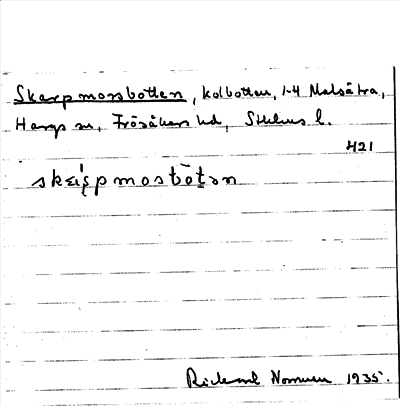 Skarpmossbotten, kolbotten, 1-4 Malsätra,
Hargs sn, Frösåkers hd, Sthlms l.
421
skarpmosbòtən
Rickard Norman 1935.